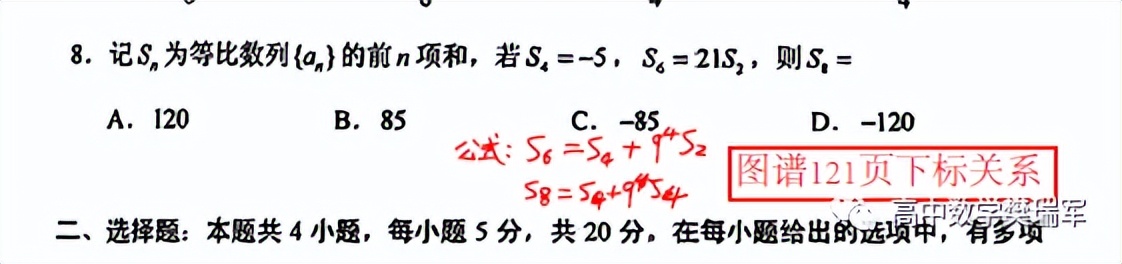 8. 记Sₙ为等比数列{aₙ}的前n项和，若S₄=-5，S₆=21S₂，则S₈=
A. 120 B. 85 C. -85 D. -120
公式: S₆=S₄+q⁴S₂
图谱121页下标关系
S₈=S₄+q⁴S₄
高中数学樊瑞军
二、选择题：本题共4小题，每小题5分，共20分。在每小题给出的选项中，有多项